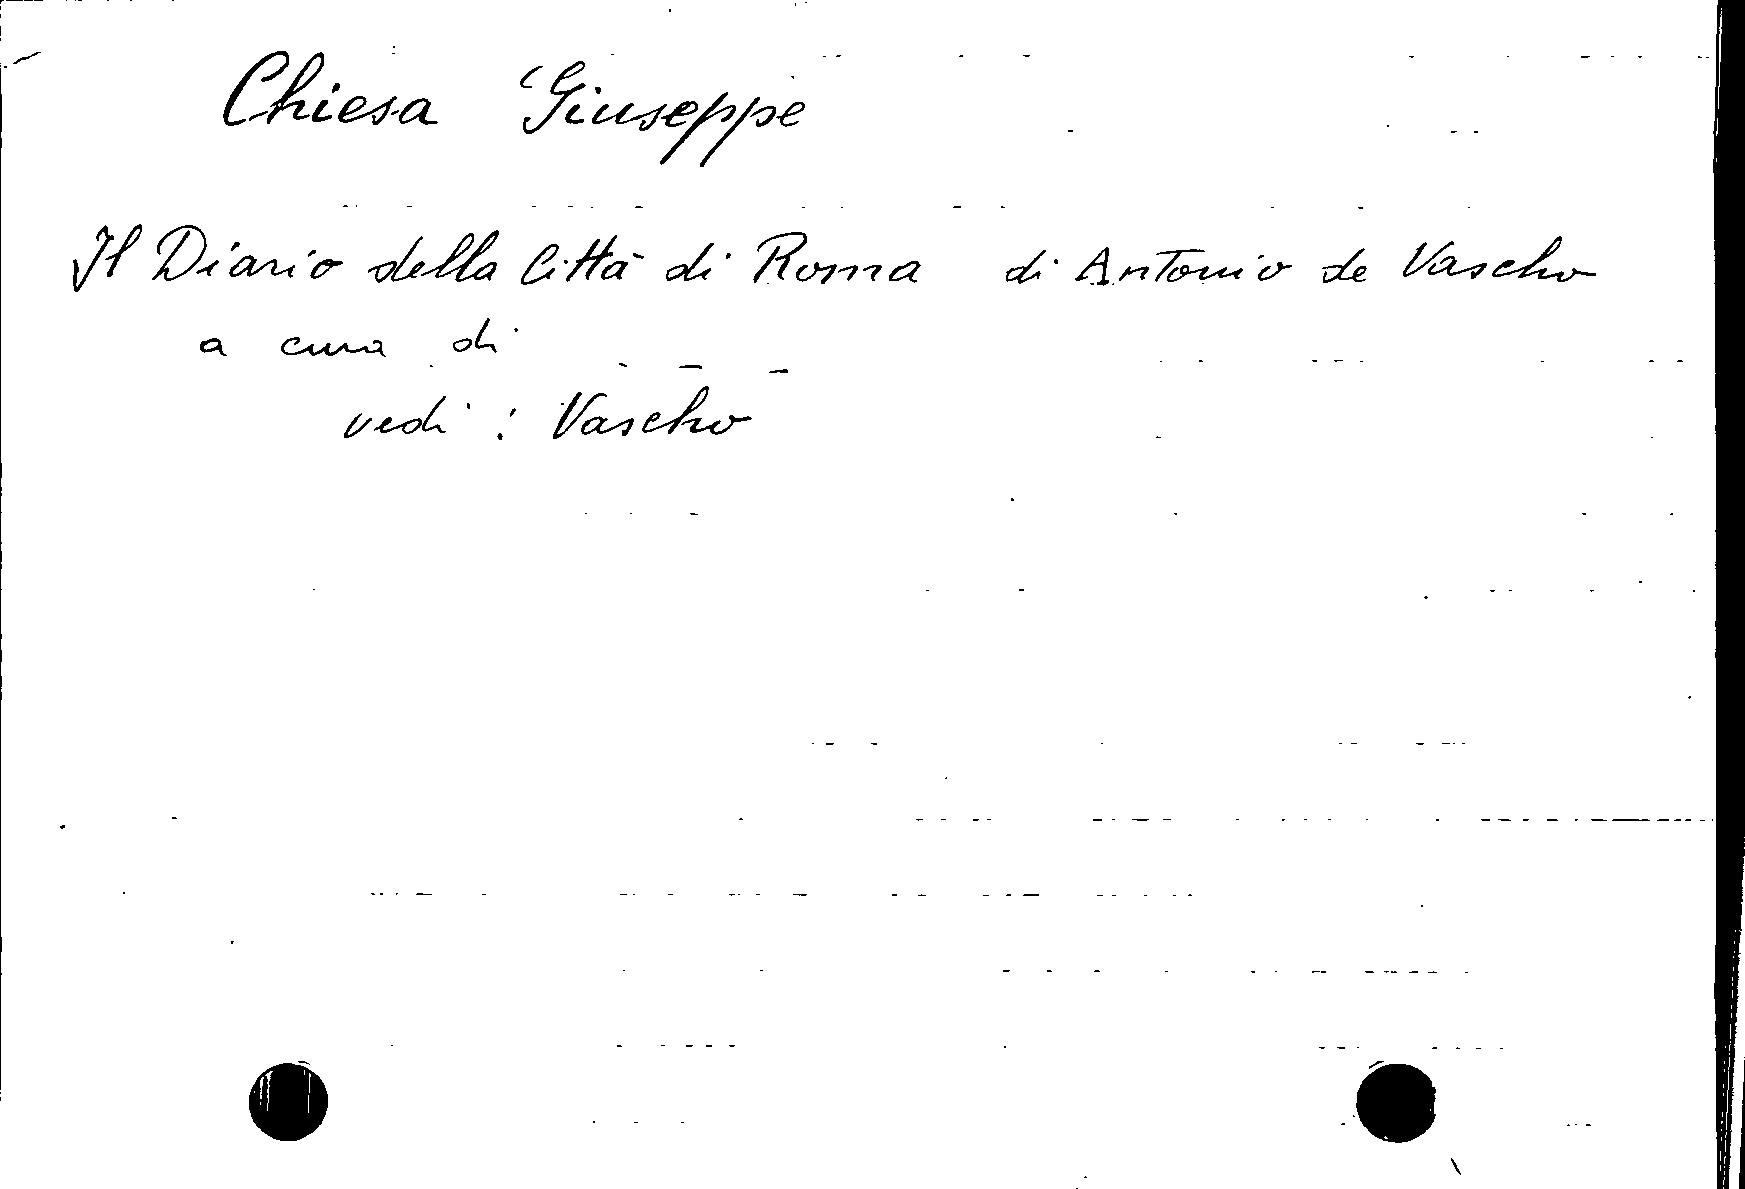 Chiesa Giuseppe
Il Diario della Città di Roma di Antonio de Vascho
a cura di
vedi : Vascho